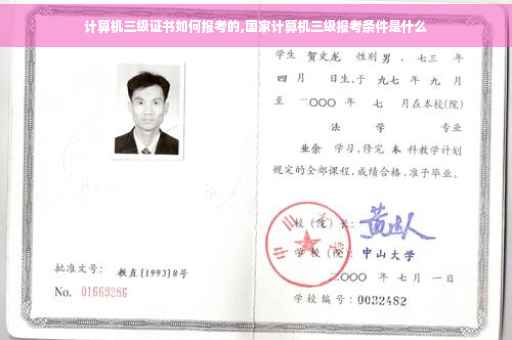 计算机三级证书如何报考的,国家计算机三级报考条件是什么
学生 贺文龙 性别 男 ，七三 年
四月 日生,于 九七 年 九 月
至 二〇〇〇 年 七 月在本校(院)
法 学 专业
业余 学习,修完 本 科教学计划
规定的全部课程,成绩合格,准予毕业。
校(院)长:
学校(院): 中山大学
批准文号: 教直(1993)8号
二〇〇〇 年 七 月 一 日
No. 01669286
学校编号: 0032482